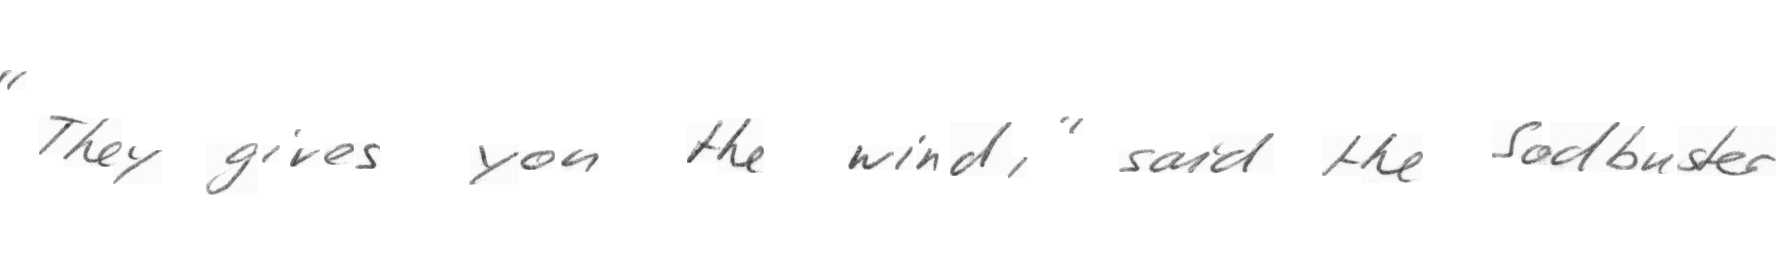 "They gives you the wind," said the Sodbuster